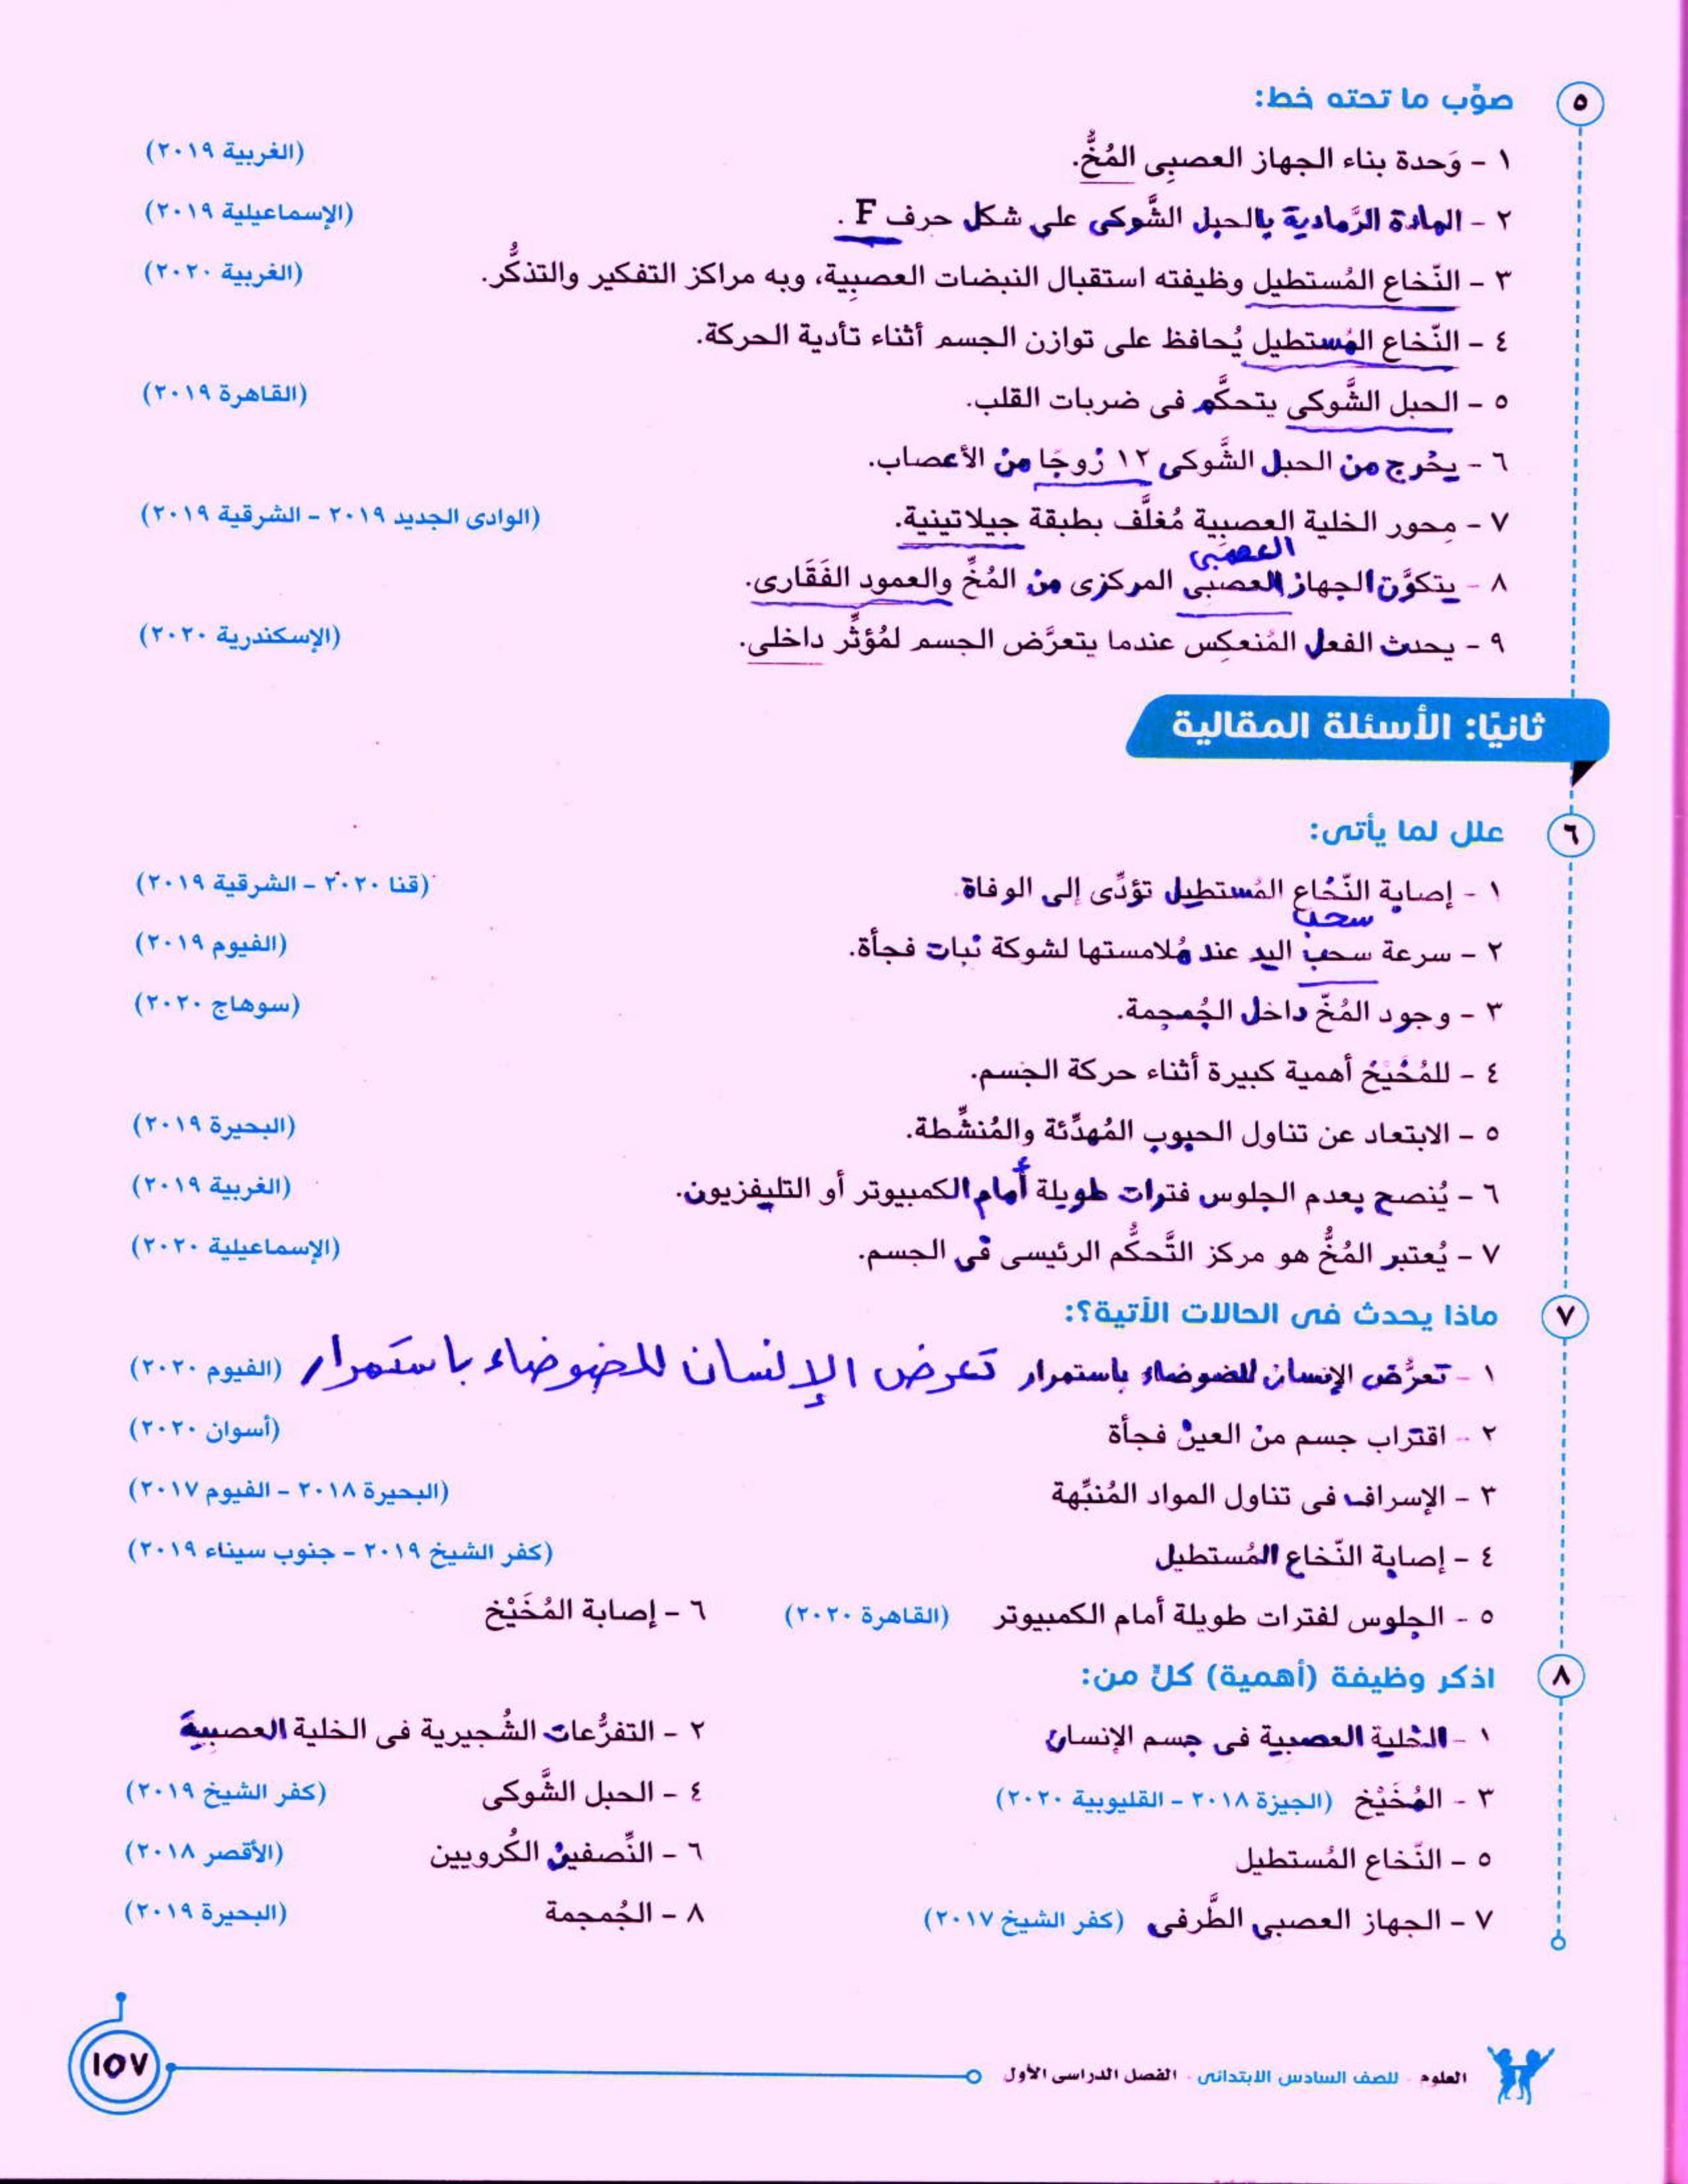 ٥ صوِّب ما تحته خط:
١ - وَحدة بناء الجهاز العصبِى المُخُّ. (الغربية ٢٠١٩)
٢ - المادة الرَّمادية بالحبل الشَّوكى على شكل حرف F . (الإسماعيلية ٢٠١٩)
٣ - النّخاع المُستطيل وظيفته استقبال النبضات العصبِية، وبه مراكز التفكير والتذكُّر. (الغربية ٢٠٢٠)
٤ - النّخاع المُستطيل يُحافظ على توازن الجسم أثناء تأدية الحركة.
٥ - الحبل الشَّوكى يتحكَّم فى ضربات القلب. (القاهرة ٢٠١٩)
٦ - يخرج من الحبل الشَّوكى ١٢ زوجًا من الأعصاب.
٧ - محور الخلية العصبِية مُغلَّف بطبقة جيلاتينية. (الوادى الجديد ٢٠١٩ - الشرقية ٢٠١٩)
العصبى
٨ - يتكوَّن الجهاز العصبى المركزى من المُخِّ والعمود الفَقَارى.
٩ - يحدث الفعل المُنعكِس عندما يتعرَّض الجسم لمُؤثِّر داخلى. (الإسكندرية ٢٠٢٠)
ثانيًا: الأسئلة المقالية
٦ علل لما يأتى:
١ - إصابة النّخاع المُستطيل تؤدِّى إلى الوفاة. (قنا ٢٠٢٠ - الشرقية ٢٠١٩)
سحب
٢ - سرعة سحب اليد عند مُلامستها لشوكة نبات فجأة. (الفيوم ٢٠١٩)
٣ - وجود المُخِّ داخل الجُمجمة. (سوهاج ٢٠٢٠)
٤ - للمُخَيْخ أهمية كبيرة أثناء حركة الجسم.
٥ - الابتعاد عن تناول الحبوب المُهدِّئة والمُنشِّطة. (البحيرة ٢٠١٩)
٦ - يُنصح بعدم الجلوس فترات طويلة أمام الكمبيوتر أو التليفزيون. (الغربية ٢٠١٩)
٧ - يُعتبر المُخُّ هو مركز التَّحكُّم الرئيسى فى الجسم. (الإسماعيلية ٢٠٢٠)
٧ ماذا يحدث فى الحالات الآتية؟:
١ - تعرُّض الإنسان للضوضاء باستمرار تعرض الإنسان للضوضاء باستمرار (الفيوم ٢٠٢٠)
٢ - اقتراب جسم من العين فجأة (أسوان ٢٠٢٠)
٣ - الإسراف فى تناول المواد المُنبِّهة (البحيرة ٢٠١٨ - الفيوم ٢٠١٧)
٤ - إصابة النّخاع المُستطيل (كفر الشيخ ٢٠١٩ - جنوب سيناء ٢٠١٩)
٥ - الجلوس لفترات طويلة أمام الكمبيوتر (القاهرة ٢٠٢٠) ٦ - إصابة المُخَيْخ
٨ اذكر وظيفة (أهمية) كلٍّ من:
١ - الخلية العصبية فى جسم الإنسان ٢ - التفرُّعات الشُّجيرية فى الخلية العصبية
٣ - المُخَيْخ (الجيزة ٢٠١٨ - القليوبية ٢٠٢٠) ٤ - الحبل الشَّوكى (كفر الشيخ ٢٠١٩)
٥ - النّخاع المُستطيل ٦ - النِّصفين الكُرويين (الأقصر ٢٠١٨)
٧ - الجهاز العصبى الطَّرفى (كفر الشيخ ٢٠١٧) ٨ - الجُمجمة (البحيرة ٢٠١٩)
العلوم - للصف السادس الابتدائى - الفصل الدراسى الأول
١٥٧